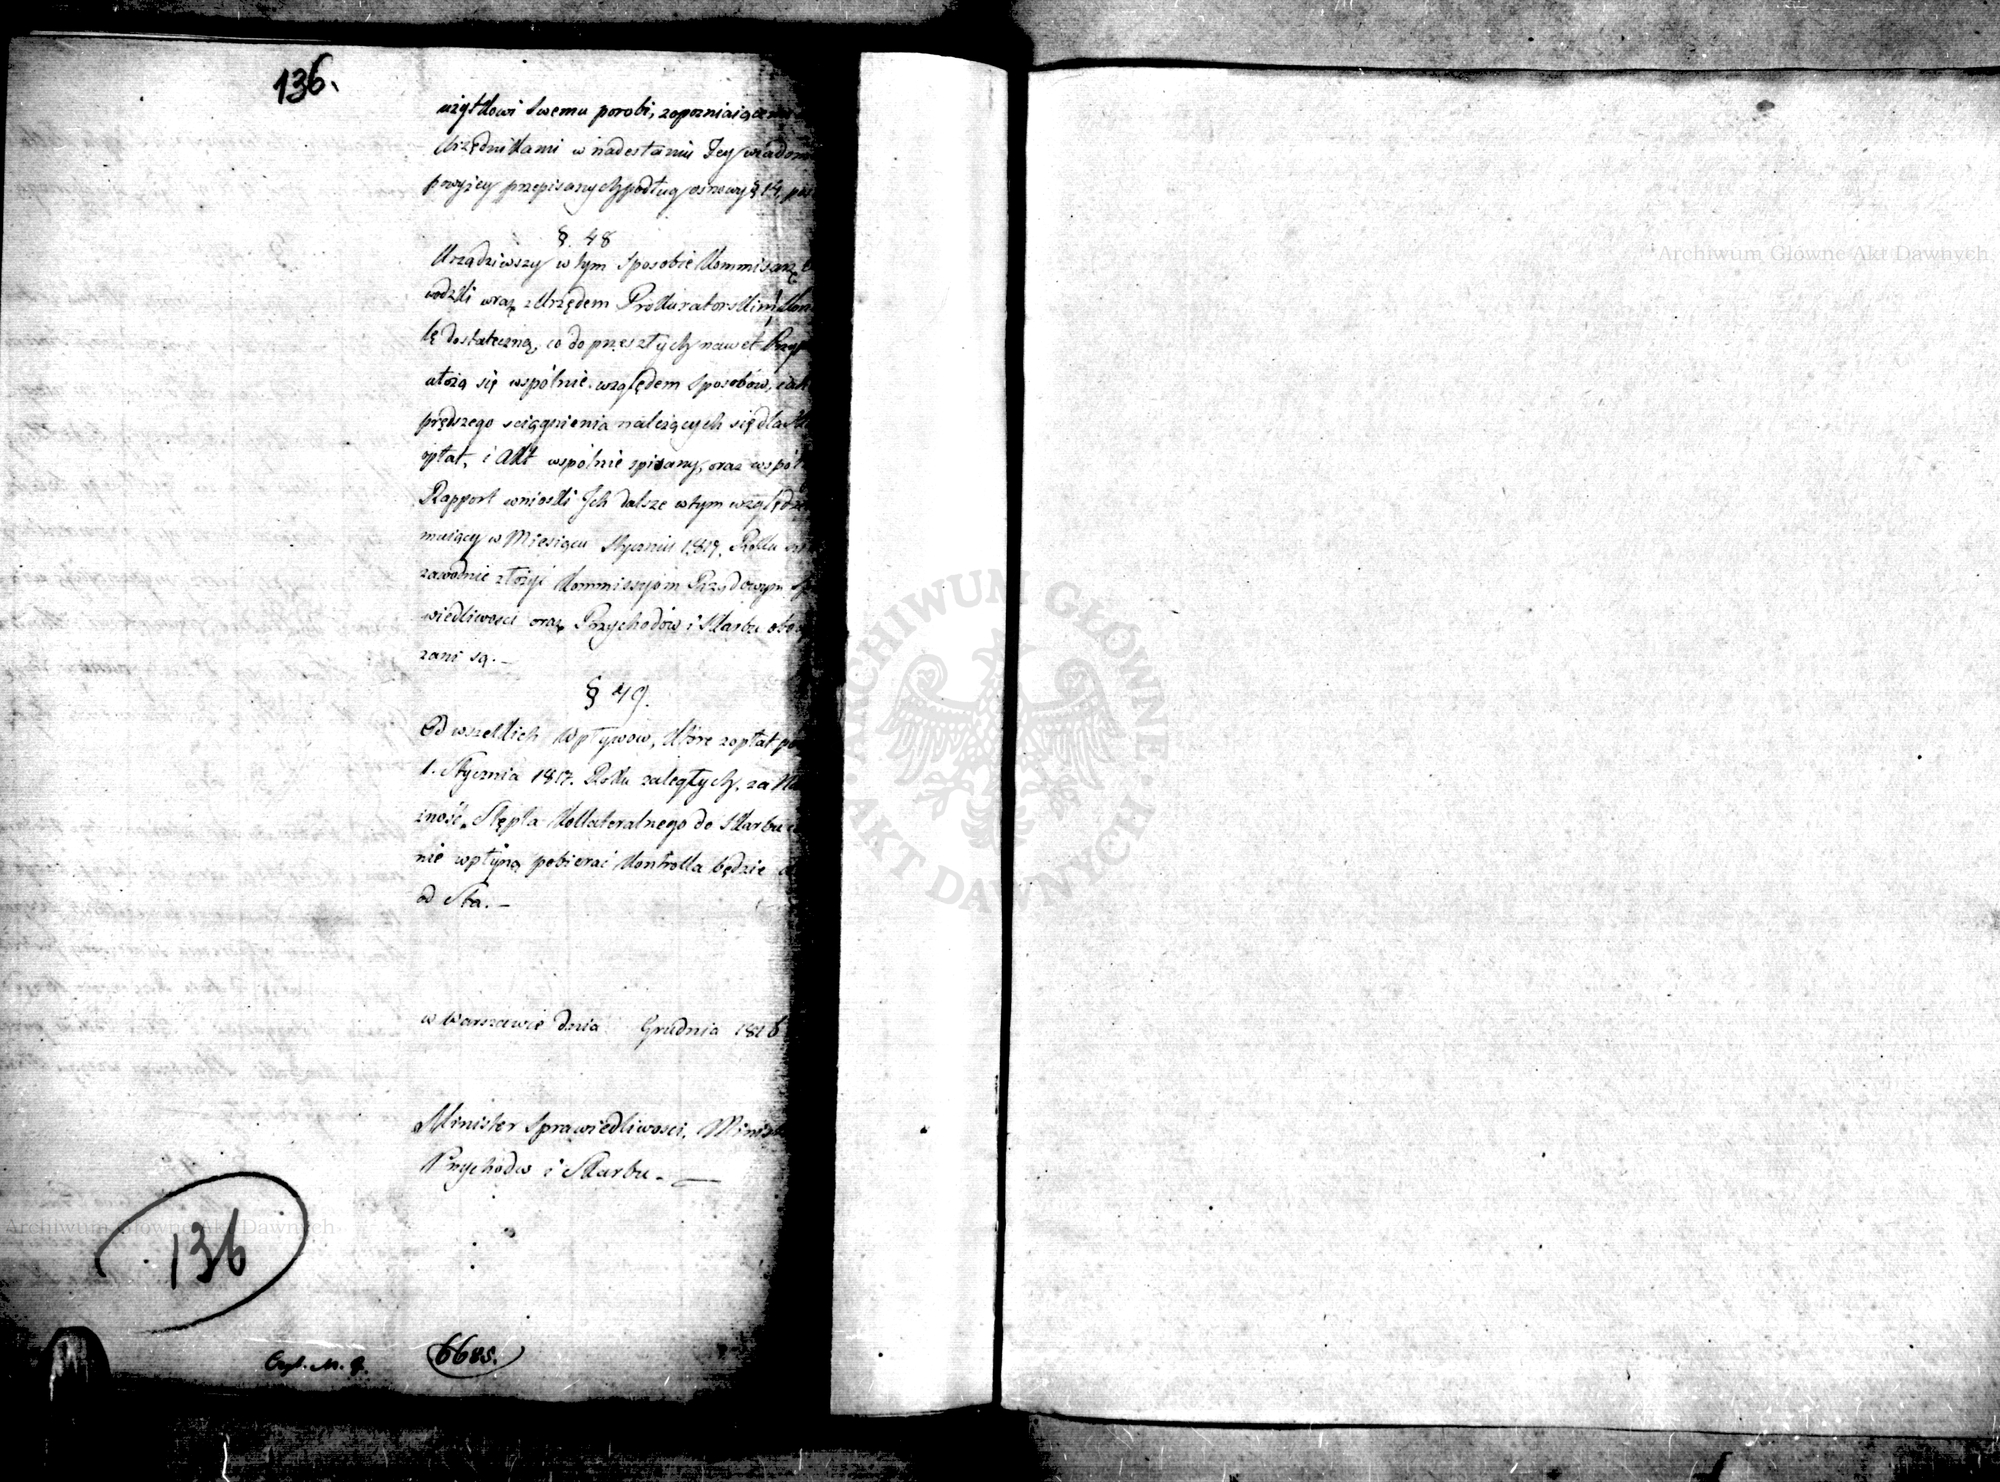 136.
użytkowi swemu porobi, zaporniaiącemi
Urzędnikami w nadesłaniu Jey wiadom
powyżey przepisanych podług osnowy § 14,
§. 48
Urządziwszy w tym sposobie Kommisarze
wodzki wraz z Urzędem Prokuratorskim Kon
lę dostateczną, co do przeszłych nawet
ułożą się wspólnie względem sposobów,
prędszego sciągnienia należących się dla
opłat, i Akt wspólnie spisany, oraz wspól
Rapport wnioski Ich dalsze w tym względzie
muiący w Miesiącu Styczniu 1817. Roku
zawodnie złożyć Kommissyom Rządowym
wiedliwosci oraz Przychodów i Skarbu obow
zani są. —
§ 49.
Od wszelkich Wpływow, które z opłat
1. Stycznia 1817. Roku zaległych, za
żność Stępla Kollateralnego do Skarbu
nie wpłyną pobierać Kontrolla będzie
od Sta. —
w Warszawie dnia Grudnia 1816
Minister Sprawiedliwosci, Minist
Przychodw i Skarbu. —
136
66 vs.
Archiwum Główne Akt Dawnych
Archiwum Główne Akt Dawnych
ARCHIWUM GŁÓWNE
AKT DAWNYCH